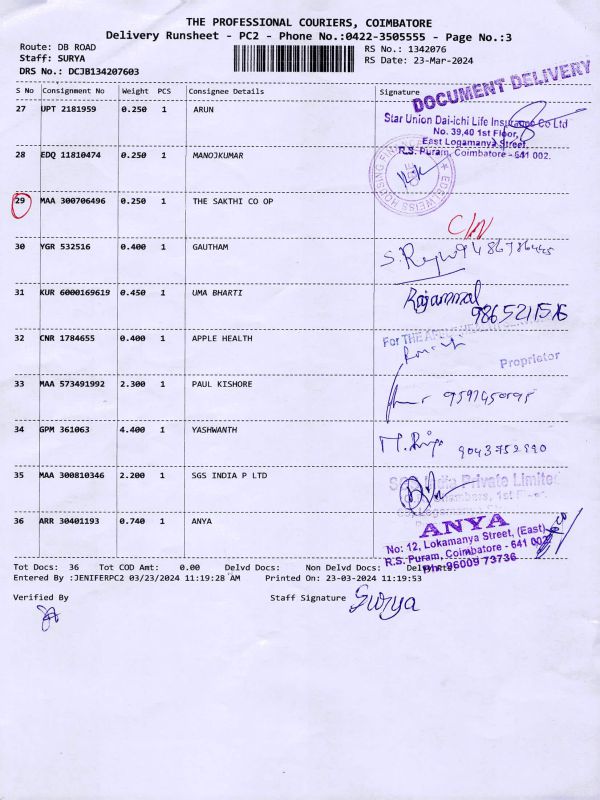 THE PROFESSIONAL COURIERS, COIMBATORE
Delivery Runsheet - PC2 - Phone No.:0422-3505555 - Page No.:3
Route: DB ROAD
RS No.: 1342076
Staff: SURYA
RS Date: 23-Mar-2024
DRS No.: DCJB134207603
S No Consignment No Weight PCS Consignee Details Signature
DOCUMENT DELIVERY
27 UPT 2181959 0.250 1 ARUN
Star Union Dai-ichi Life Insurance Co Ltd
No. 39,40 1st Floor,
East Logamanya Street,
R.S. Puram, Coimbatore - 641 002.
28 EDQ 11810474 0.250 1 MANOJKUMAR
EDELWEISS HOUSING FINANCE
29 MAA 300706496 0.250 1 THE SAKTHI CO OP
C/N
30 YGR 532516 0.400 1 GAUTHAM
31 KUR 6000169619 0.450 1 UMA BHARTI
Rajammal
32 CNR 1784655 0.400 1 APPLE HEALTH
For THE
Proprietor
33 MAA 573491992 2.300 1 PAUL KISHORE
34 GPM 361063 4.400 1 YASHWANTH
35 MAA 300810346 2.200 1 SGS INDIA P LTD
India Private Limited
36 ARR 30401193 0.740 1 ANYA
ANYA
No: 12, Lokamanya Street, (East)
R.S. Puram, Coimbatore - 641 002
Ph: 96009 73736
Tot Docs: 36 Tot COD Amt: 0.00 Delvd Docs: Non Delvd Docs:
Entered By :JENIFERPC2 03/23/2024 11:19:28 AM Printed On: 23-03-2024 11:19:53
Verified By
Staff Signature Surya